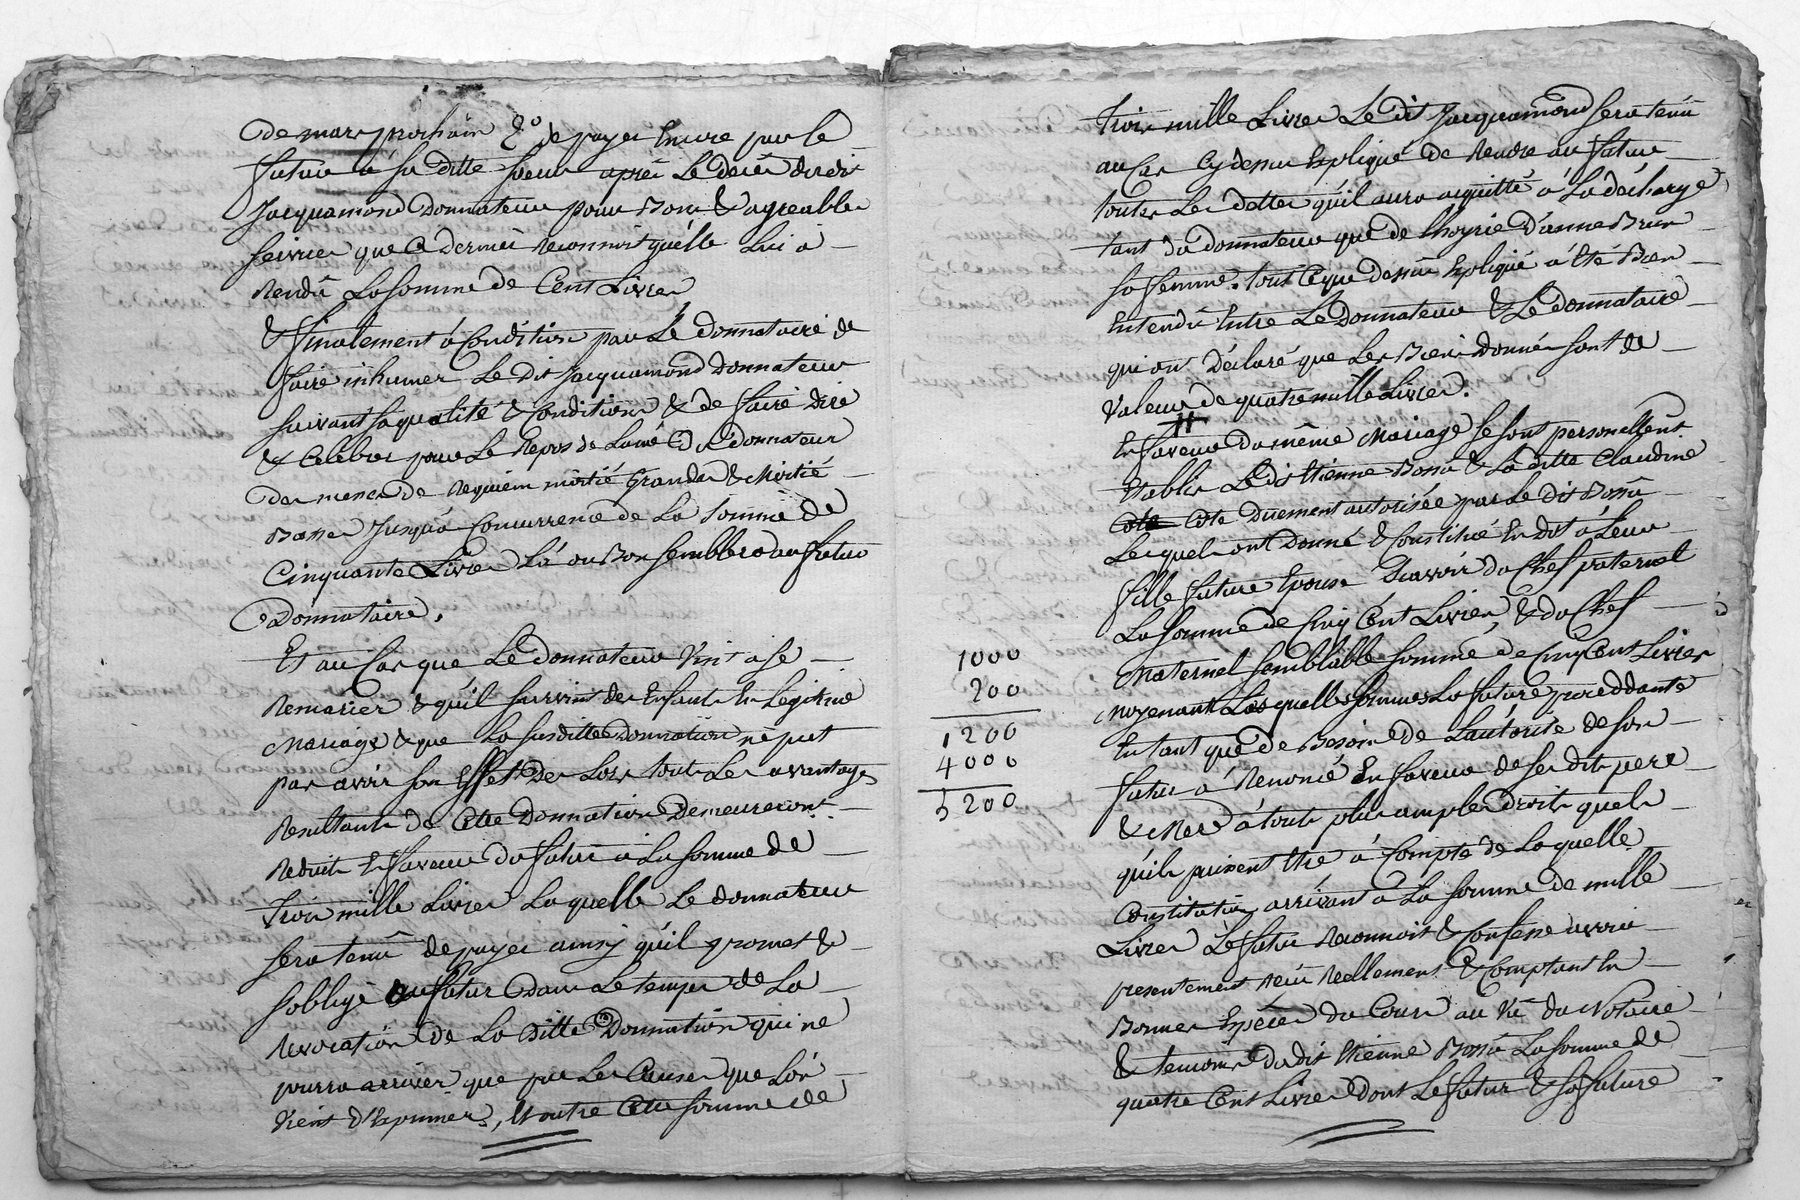 de mars prochain 2° de payer Encore par le
futur à sa ditte soeur après Le decès dudit
Jacquamond Donnateur pour Bons & agreables
services que ce dernier reconnoit qu'elle Lui a
Rendû La somme de Cent Livres
& finalement à Condition par Le donnataire de
faire inhumer Le Dit Jacquamond Donnateur
suivant sa qualité & Condition & de faire dire
& Celebrer pour Le Repos de Lame du donnateur
des messes de Requiem moitié Grandes & Moitié
Basses Jusqu'à Concurrence de La somme de
Cinquante Livres Là ou Bon semblera au futur
Donnataire.
Et au Cas que Le donnateur Vint a se
Remarier & qu'il survint des Enfants En Legitime
Mariage & que La susditte Donnation ne put
pas avoir son Effet Des Lors touts Les avantages
Resultants de Cette Donnation Demeureront
Reduits En faveur du futur à La somme de
Trois mille Livres Laquelle Le donnateur
sera tenû de payer ainsy qu'il promet &
s'oblige au futur Dans Le temps de La
Revocation de La ditte Donnation qui ne
pourra arriver que par Les Causes que L'on
Vient d'Exprimer, Et outre Cette somme de
Trois mille Livres Le dit Jacquamond sera tenû
au Cas Cy dessus Expliqué de Rendre au futur
touttes Les dettes qu'il aura acquitté à La décharge
tant du donnateur que de L'hoyrie d'anne Brun
sa femme. tout Ceque dessus Expliqué a Eté Bien
Entendû Entre Le Donnateur & Le donnataire
qui ont Déclaré que Les Biens Donnés sont de
Valeur de quatre mille Livres.
En faveur du même Mariage se sont personellement
Etablis Le dit Etienne & La ditte Claudine
Cote Düement autorisée par Le Dit
Lesquels ont Donné & Constitué En Dot à Leur
fille future Epouse Sçavoir du Chef paternel
La somme de Cinq Cent Livres, & du Chef
Maternel semblable somme de Cinq Cent Livres
1000
200
1200
4000
5200
Moyenant Lesquelles sommes La future procedante
En tant que de Besoin de L'autorité de son
futur à Renoncé En faveur de ses dits pere
& Mere à touts plus amples droits quels
qu'ils puisent être à Compte de Laquelle
Constitution arrivant à La somme de mille
Livres Le futur Reconnoit & Confesse avoir
presentement Reçû Reellement & Comptant En
Bonnes Especes du Cours au Vû du Notaire
& temoins dudit Etienne La somme de
quatre Cent Livres Dont Le futur & sa future